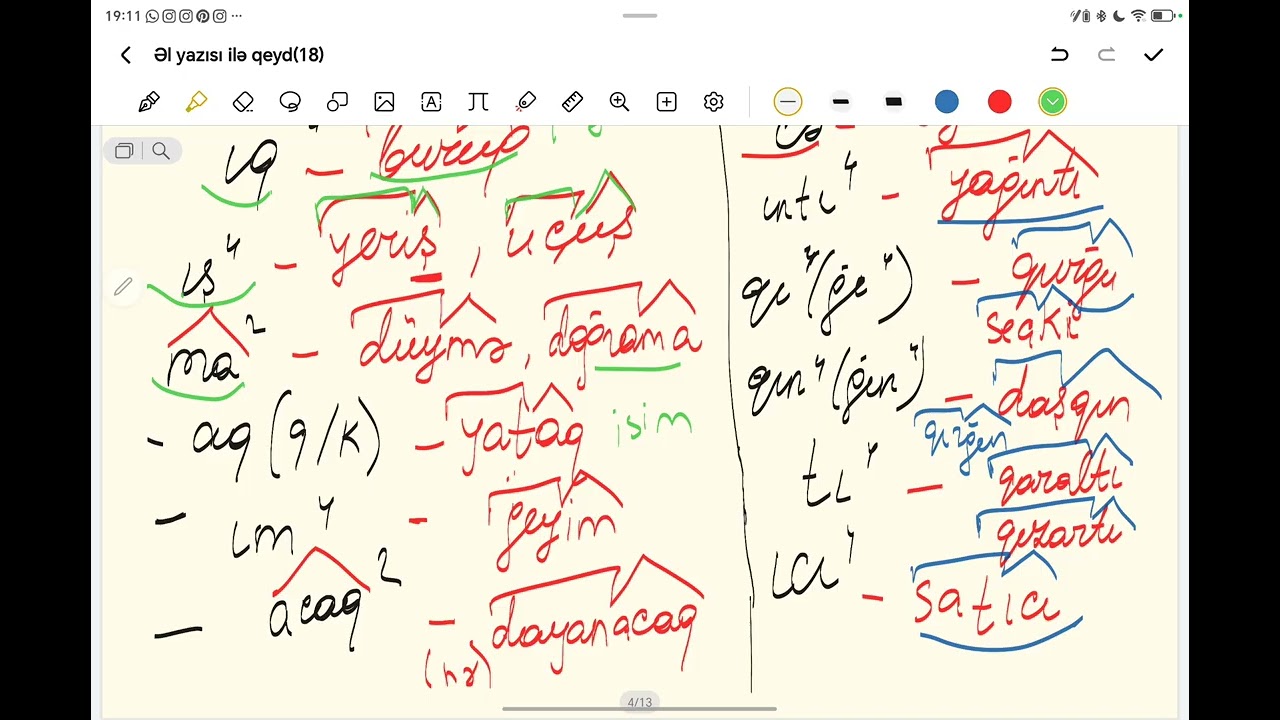 19:11
Əl yazısı ilə qeyd(18)
ıq⁴ –
ış⁴ – yeriş, uçuş
ma² – düymə, doğrama
- aq (q/k) – yataq isim
- ım⁴ - geyim
- acaq² – dayanacaq
(nə)
ıntı⁴ - yağıntı
qı⁴(ğı⁴) – qurğu
seçki
qın⁴(ğın⁴) – daşqın
qızğın
tı⁴ – qaraltı
qızartı
ıcı⁴ – satıcı
4/13